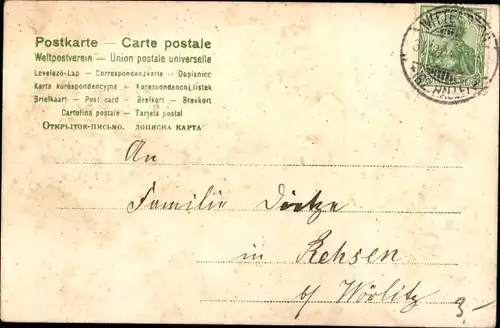 Postkarte — Carte postale
Weltpostverein — Union postale universelle
Levelező-Lap — Correspondenzkarte — Dopisnice
Karta korespondencyjna — Korespondenční lístek
Briefkaart — Post card — Brefkort — Brevkort
Cartolina postale — Tarjeta postal
Открытое-письмо. дописна карта
An
Familie Dietze
in Rehsen
b/ Wörlitz
3.-